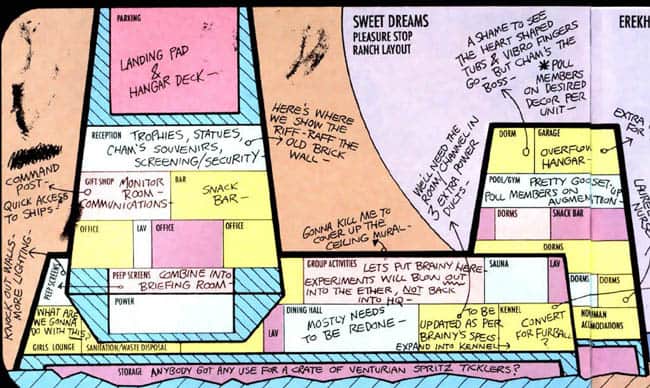 PARKING
LANDING PAD
&
HANGAR DECK-
SWEET DREAMS
PLEASURE STOP
RANCH LAYOUT
A SHAME TO SEE
THE HEART SHAPED
TUBS & VIBRO FINGERS
GO- BUT CHAM'S THE
BOSS-
*POLL
MEMBERS
ON DESIRED
DECOR PER
UNIT-
EREKH
RECEPTION
TROPHIES, STATUES,
CHAM'S SOUVENIRS,
SCREENING/SECURITY-
HERE'S WHERE
WE SHOW THE
RIFF-RAFF THE
OLD BRICK
WALL-
COMMAND
POST-
QUICK ACCESS
TO SHIPS-
GIFT SHOP
MONITOR
ROOM-
COMMUNICATIONS-
BAR
SNACK
BAR-
OFFICE
LAV
OFFICE
OFFICE
KNOCK OUT WALLS-
MORE LIGHTING-
PEEP SCREENS
PEEP SCREENS
COMBINE INTO
BRIEFING ROOM-
POWER
WHAT ARE
WE GONNA
DO WITH THIS
GIRLS LOUNGE
SANITATION/WASTE DISPOSAL
LAV
GONNA KILL ME TO
COVER UP THE
CEILING MURAL-
WE'LL NEED THE
ROOM, CHANNEL IN
3 EXTRA POWER
DUCTS-
GROUP ACTIVITIES
LETS PUT BRAINY HERE-
EXPERIMENTS WILL BLOW OUT
INTO THE ETHER, NOT BACK
INTO HQ-
DINING HALL
MOSTLY NEEDS
TO BE REDONE-
TO BE
UPDATED AS PER
BRAINY'S SPECS-
EXPAND INTO KENNEL
DORM
GARAGE
OVERFLOW
HANGAR-
EXTRA
FOR
POOL/GYM
PRETTY GOOD SET-UP
POLL MEMBERS ON
AUGMENTATION-
DORMS
SNACK BAR
DORMS
SAUNA
LAV
KENNEL
CONVERT
FOR FURBALL?
DORMS
DORMS
NURSE
STORAGE
ANYBODY GOT ANY USE FOR A CRATE OF VENTURIAN SPRITZ TICKLERS?